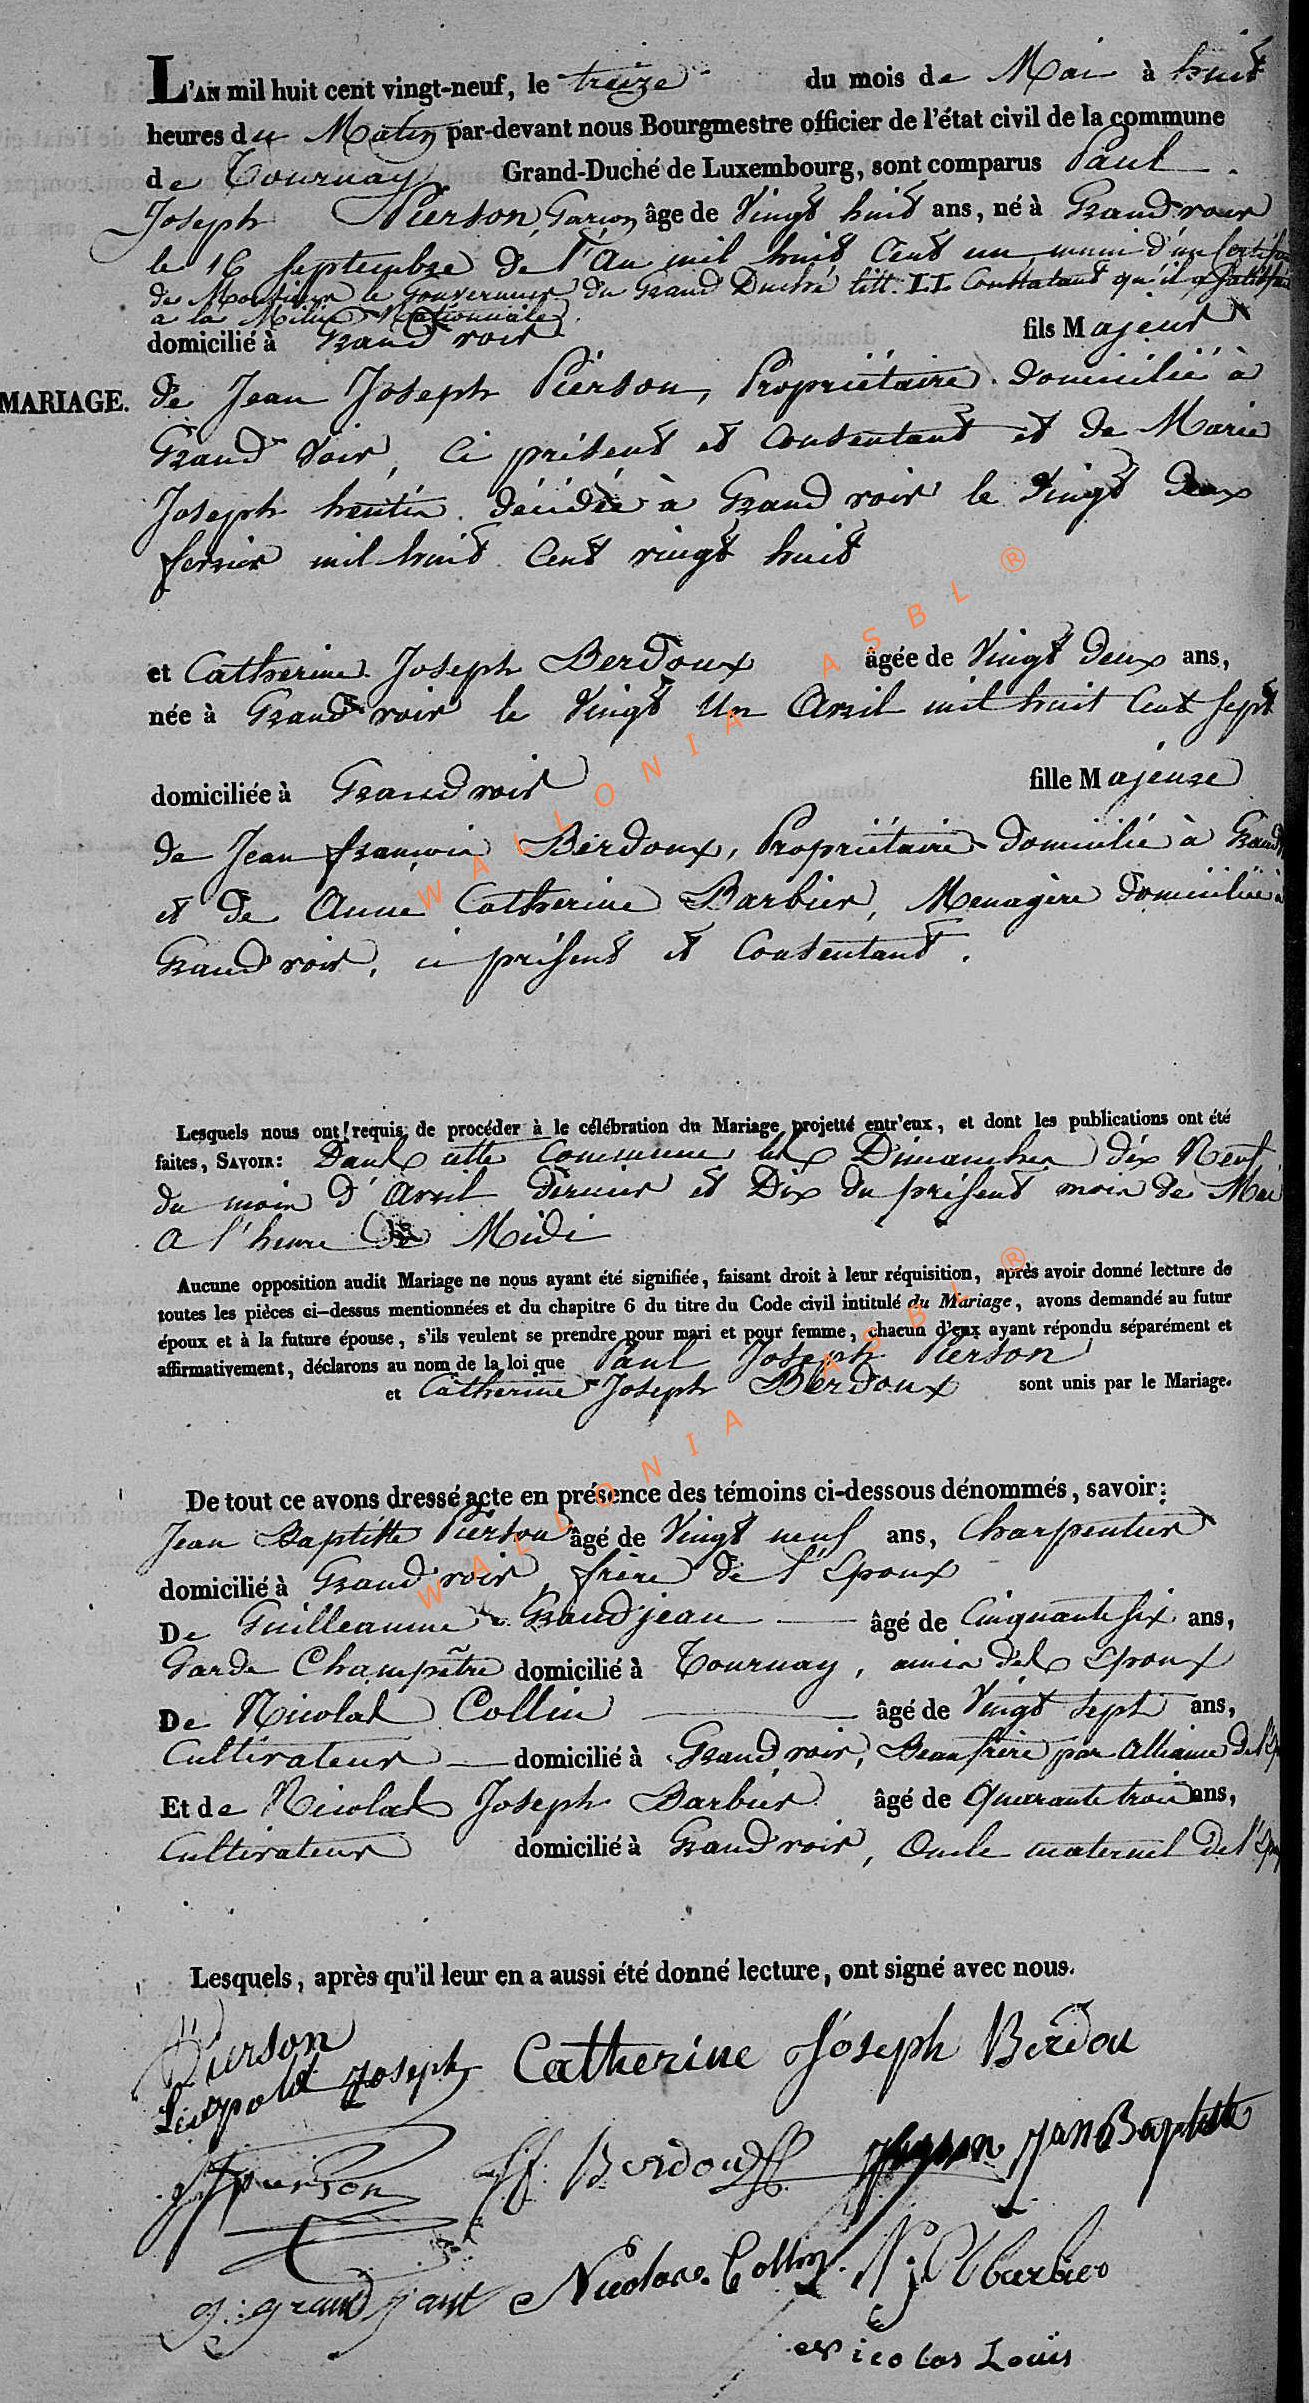 L'AN mil huit cent vingt-neuf, le treize du mois de Mai à huit
heures du Matin par-devant nous Bourgmestre officier de l'état civil de la commune
de Tournay Grand-Duché de Luxembourg, sont comparus Paul
Joseph Pierson, Garçon, âge de Vingt huit ans, né à Grandvoir
le 16 Septembre de l'An mil huit Cent un muni d'un Certificat
de Monsieur le Gouverneur du Grand Duché litt. II Constatant qu'il a satisfait
a la Milice Nationnale
domicilié à Grandvoir fils Majeur
MARIAGE.
de Jean Joseph Pierson, Propriétaire domicilié à
Grand Voir, Ci présent et Consentant et de Marie
Joseph décédée à Grandvoir le Vingt Deux
fevrier mil huit Cent vingt huit
et Catherine Joseph Berdoux âgée de Vingt Deux ans,
née à Grandvoir le Vingt Un Avril mil huit Cent Sept
domiciliée à Grandvoir fille Majeure
de Jean françois Berdoux, Propriétaire domicilié à Grand
et de Anne Catherine Barbier, Menagère domiciliée à
Grandvoir, ci présent et Consentant.
Lesquels nous ont requis de procéder à le célébration du Mariage projetté entr'eux, et dont les publications ont été
faites, SAVOIR: Dans cette Commune les Dimanches dix Neuf
du mois d'Avril dernier et Dix du présent mois de Mai
a l'heure de Midi
Aucune opposition audit Mariage ne nous ayant été signifiée, faisant droit à leur réquisition, après avoir donné lecture de
toutes les pièces ci-dessus mentionnées et du chapitre 6 du titre du Code civil intitulé du Mariage, avons demandé au futur
époux et à la future épouse, s'ils veulent se prendre pour mari et pour femme, chacun d'eux ayant répondu séparément et
affirmativement, déclarons au nom de la loi que Paul Joseph Pierson
et Catherine Joseph Berdoux sont unis par le Mariage.
De tout ce avons dressé acte en présence des témoins ci-dessous dénommés, savoir:
Jean Baptiste Pierson âgé de Vingt neuf ans, Charpentier
domicilié à Grandvoir, frère de l'Epoux
De Guilleaume Grandjean âgé de Cinquante six ans,
Garde Champêtre domicilié à Tournay, amis des Epoux
De Nicolas Collin âgé de Vingt sept ans,
Cultivateur domicilié à Grandvoir, Beaufrère par Alliance de l'Ep
Et de Nicolas Joseph Barbier âgé de Quarante trois ans,
Cultivateur domicilié à Grandvoir, Oncle maternel de l'Ep
Lesquels, après qu'il leur en a aussi été donné lecture, ont signé avec nous.
Pierson
Léopold Joseph Catherine Joseph Berdou
JJ pierson JF Berdoux Pierson Jan Baptiste
g: grand jant Nicolas Collin NJ Barbier
Nicolas Louis
WALLONIA ASBL ®
WALLONIA ASBL ®